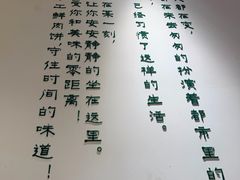 都在忙
来去匆匆的扮演着都市里的
已经习惯了这样的生活。
在某一刻，
让你安安静静的坐在这里。
爱你和美味的零距离！
工鲜肉饼，守住时间的味道！